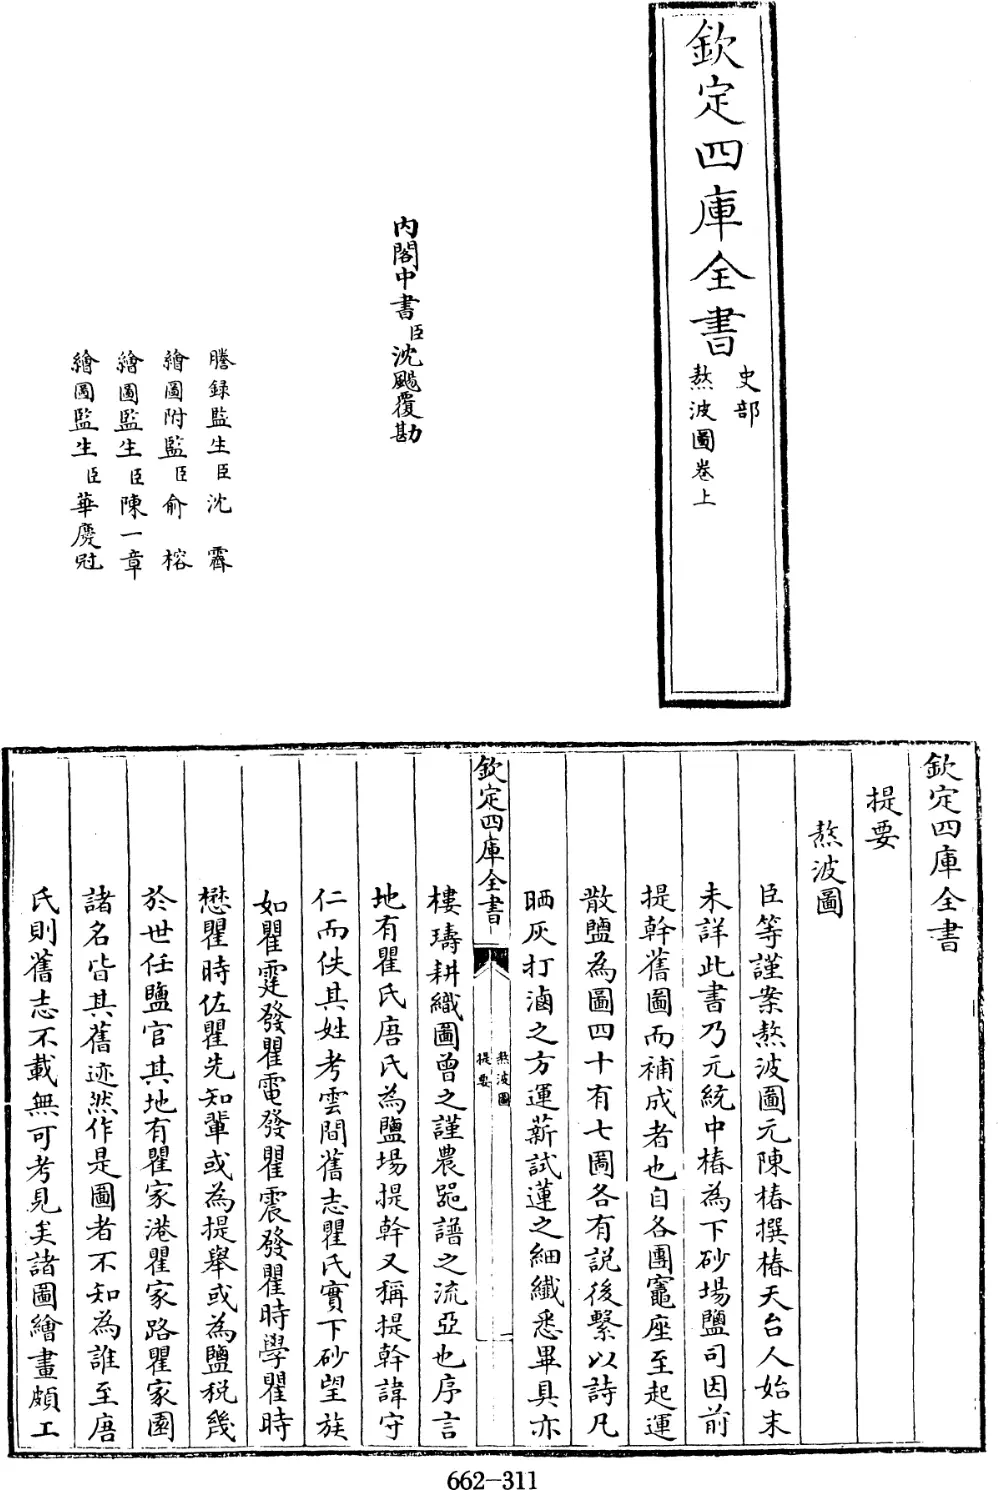 欽定四庫全書
史部
熬波圖卷上
內閣中書臣沈颺覆勘
謄錄監生臣沈霨
繪圖附監臣俞榕
繪圖監生臣陳一章
繪圖監生臣華慶冠
欽定四庫全書
提要
熬波圖
臣等謹案熬波圖元陳椿撰椿天台人始末
未詳此書乃元統中椿為下砂場鹽司因前
提幹舊圖而補成者也自各團竈座至起運
散鹽為圖四十有七圖各有説後繫以詩凡
晒灰打滷之方運薪試蓮之細纖悉畢具亦
欽定四庫全書
熬波圖
提要
樓璹耕織圖曾之謹農器譜之流亞也序言
地有瞿氏唐氏為鹽場提幹又稱提幹諱守
仁而佚其姓考雲間舊志瞿氏實下砂望族
如瞿霆發瞿電發瞿震發瞿時學瞿時
懋瞿時佐瞿先知輩或為提舉或為鹽税幾
於世任鹽官其地有瞿家港瞿家路瞿家園
諸名皆其舊迹然作是圖者不知為誰至唐
氏則舊志不載無可考見矣諸圖繪畫頗工
662-311